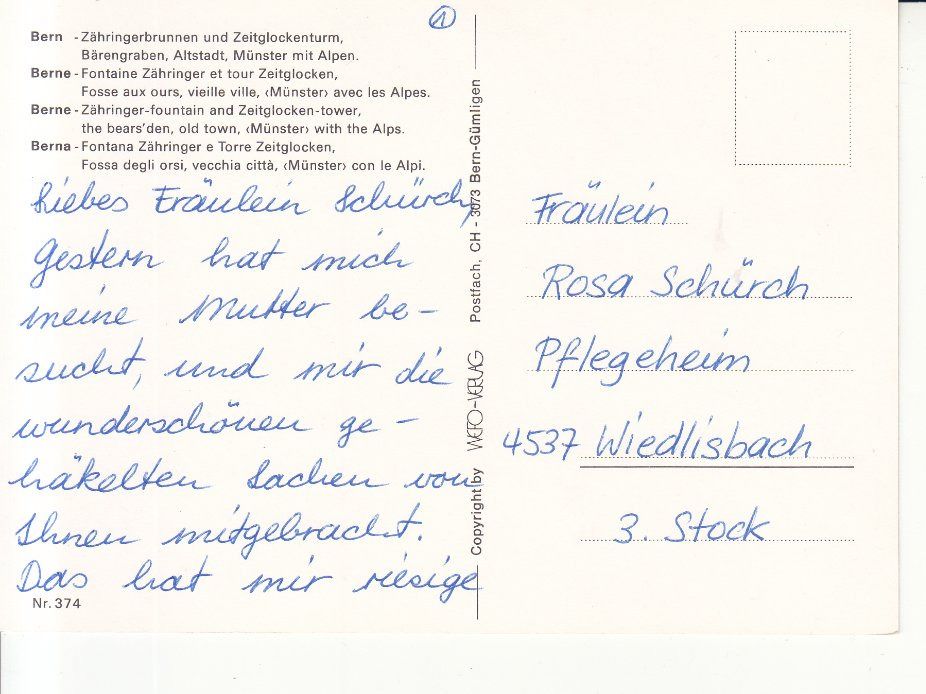 1
Bern - Zähringerbrunnen und Zeitglockenturm,
Bärengraben, Altstadt, Münster mit Alpen.
Berne - Fontaine Zähringer et tour Zeitglocken,
Fosse aux ours, vieille ville, ‹Münster› avec les Alpes.
Berne - Zähringer-fountain and Zeitglocken-tower,
the bears'den, old town, ‹Münster› with the Alps.
Berna - Fontana Zähringer e Torre Zeitglocken,
Fossa degli orsi, vecchia città, ‹Münster› con le Alpi.
Liebes Fräulein Schürch,
Gestern hat mich
meine Mutter be-
sucht, und mir die
wunderschönen ge-
häkelten Sachen von
Ihnen mitgebracht.
Das hat mir riesige
Nr. 374
Copyright by WEFO-VERLAG Postfach, CH - 3073 Bern-Gümligen
Fräulein
Rosa Schürch
Pflegeheim
4537 Wiedlisbach
3. Stock